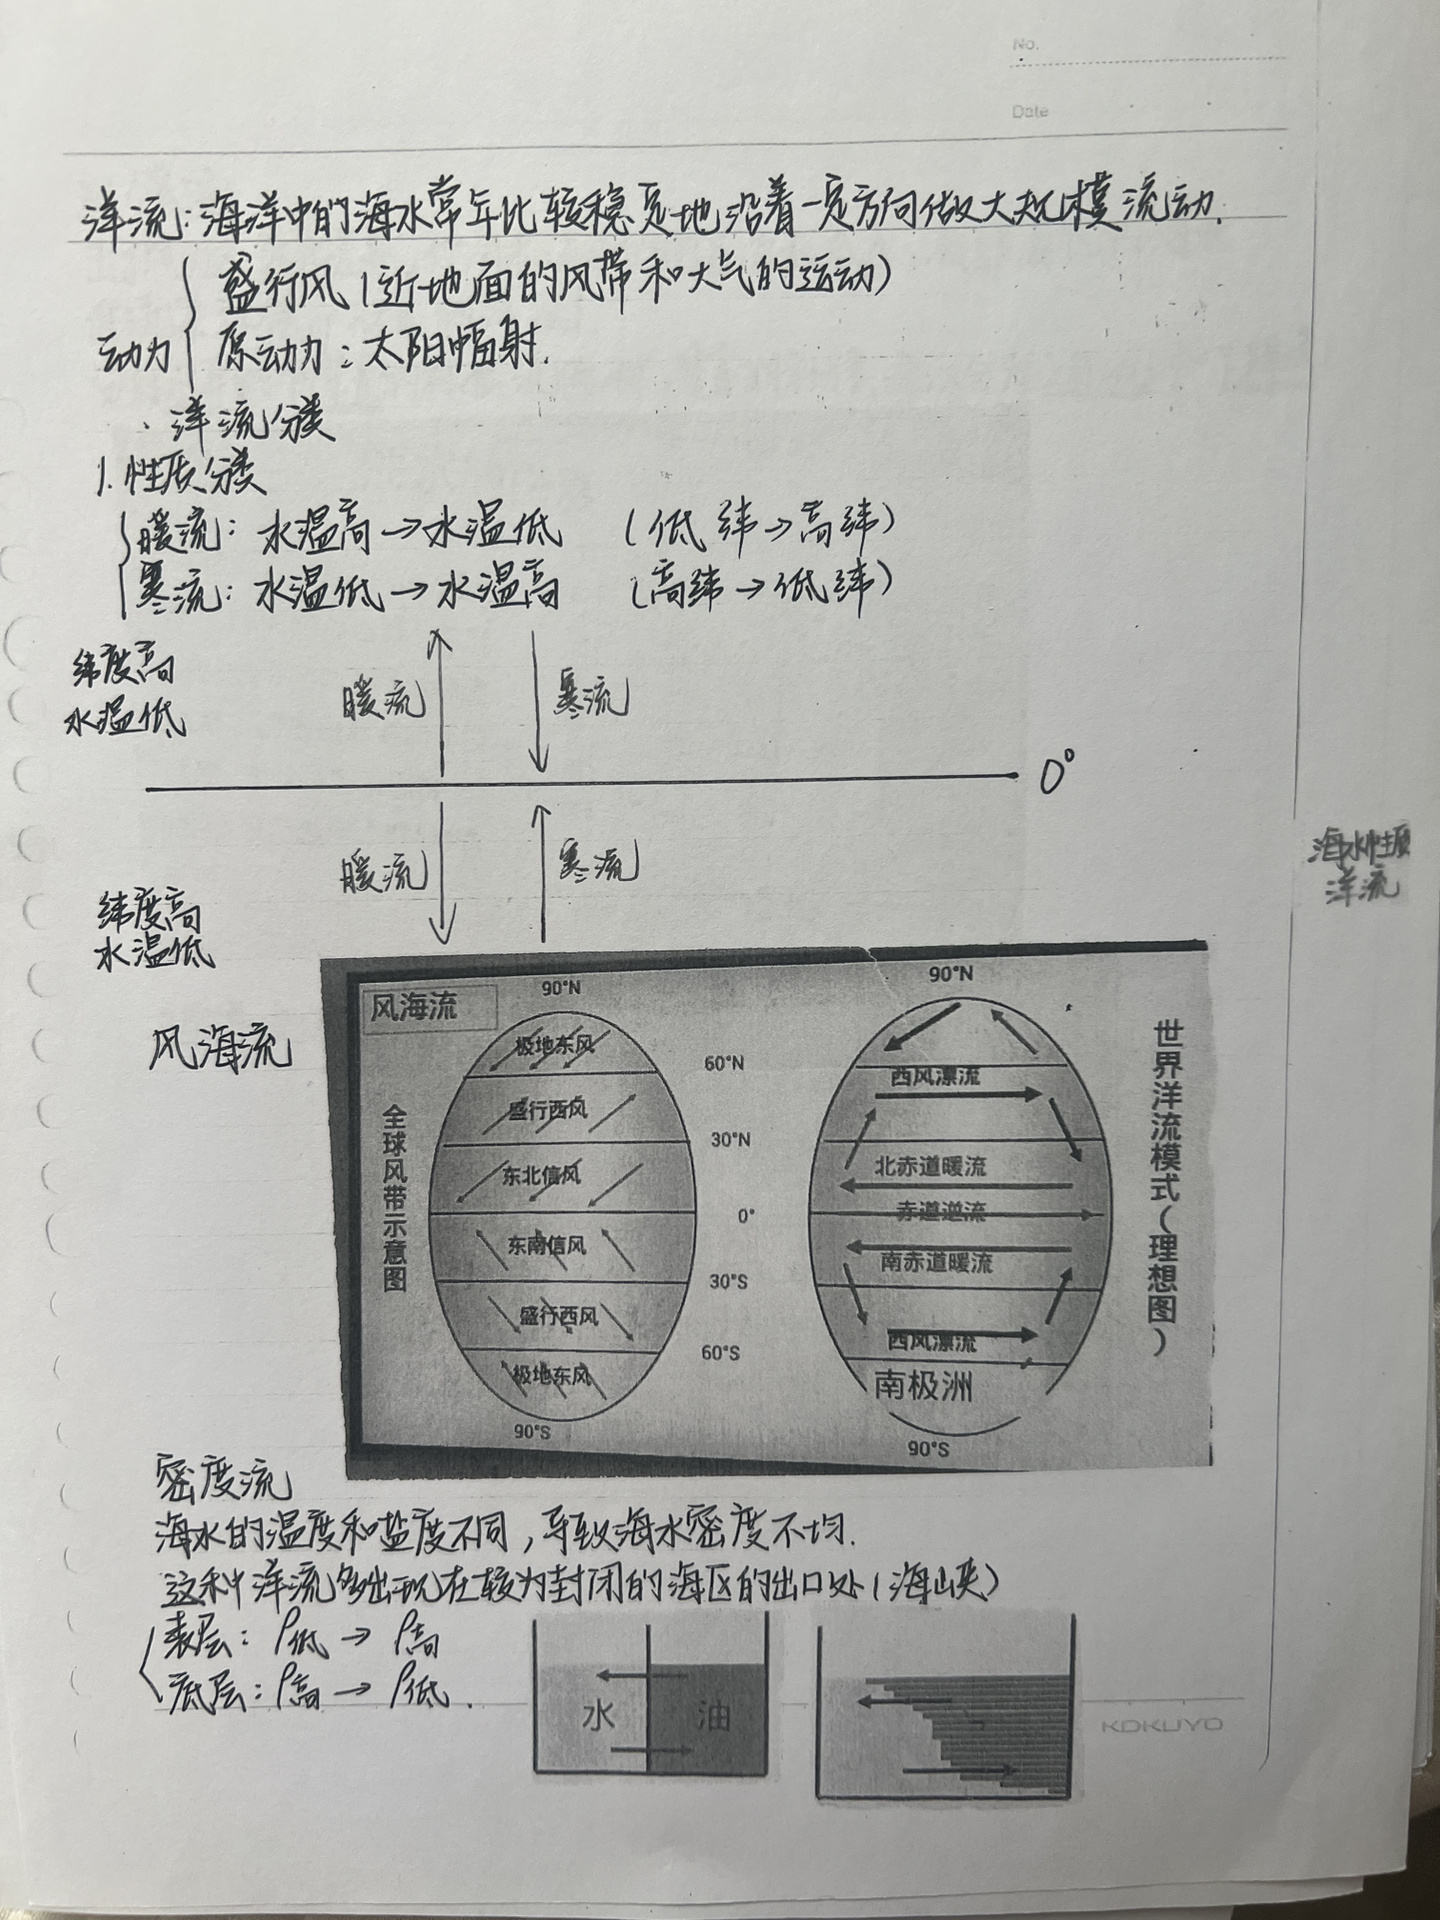 No.
Date
洋流：海洋中的海水常年比较稳定地沿着一定方向做大规模流动.
盛行风（近地面的风带和大气的运动）
动力
原动力：太阳幅射.
、洋流分类
1.性质分类
暖流：水温高→水温低 （低纬→高纬）
寒流：水温低→水温高 （高纬→低纬）
纬度高
水温低
暖流
寒流
0°
暖流
寒流
纬度高
水温低
海水性质
洋流
风海流
风海流
全球风带示意图
90°N
极地东风
盛行西风
东北信风
东南信风
盛行西风
极地东风
90°S
60°N
30°N
0°
30°S
60°S
90°N
西风漂流
北赤道暖流
赤道逆流
南赤道暖流
西风漂流
南极洲
90°S
世界洋流模式（理想图）
密度流
海水的温度和盐度不同，导致海水密度不均.
这种洋流多出现在较为封闭的海区的出口处（海峡）
表层：ρ低→ρ高
底层：ρ高→ρ低.
水 油
KOKUYO